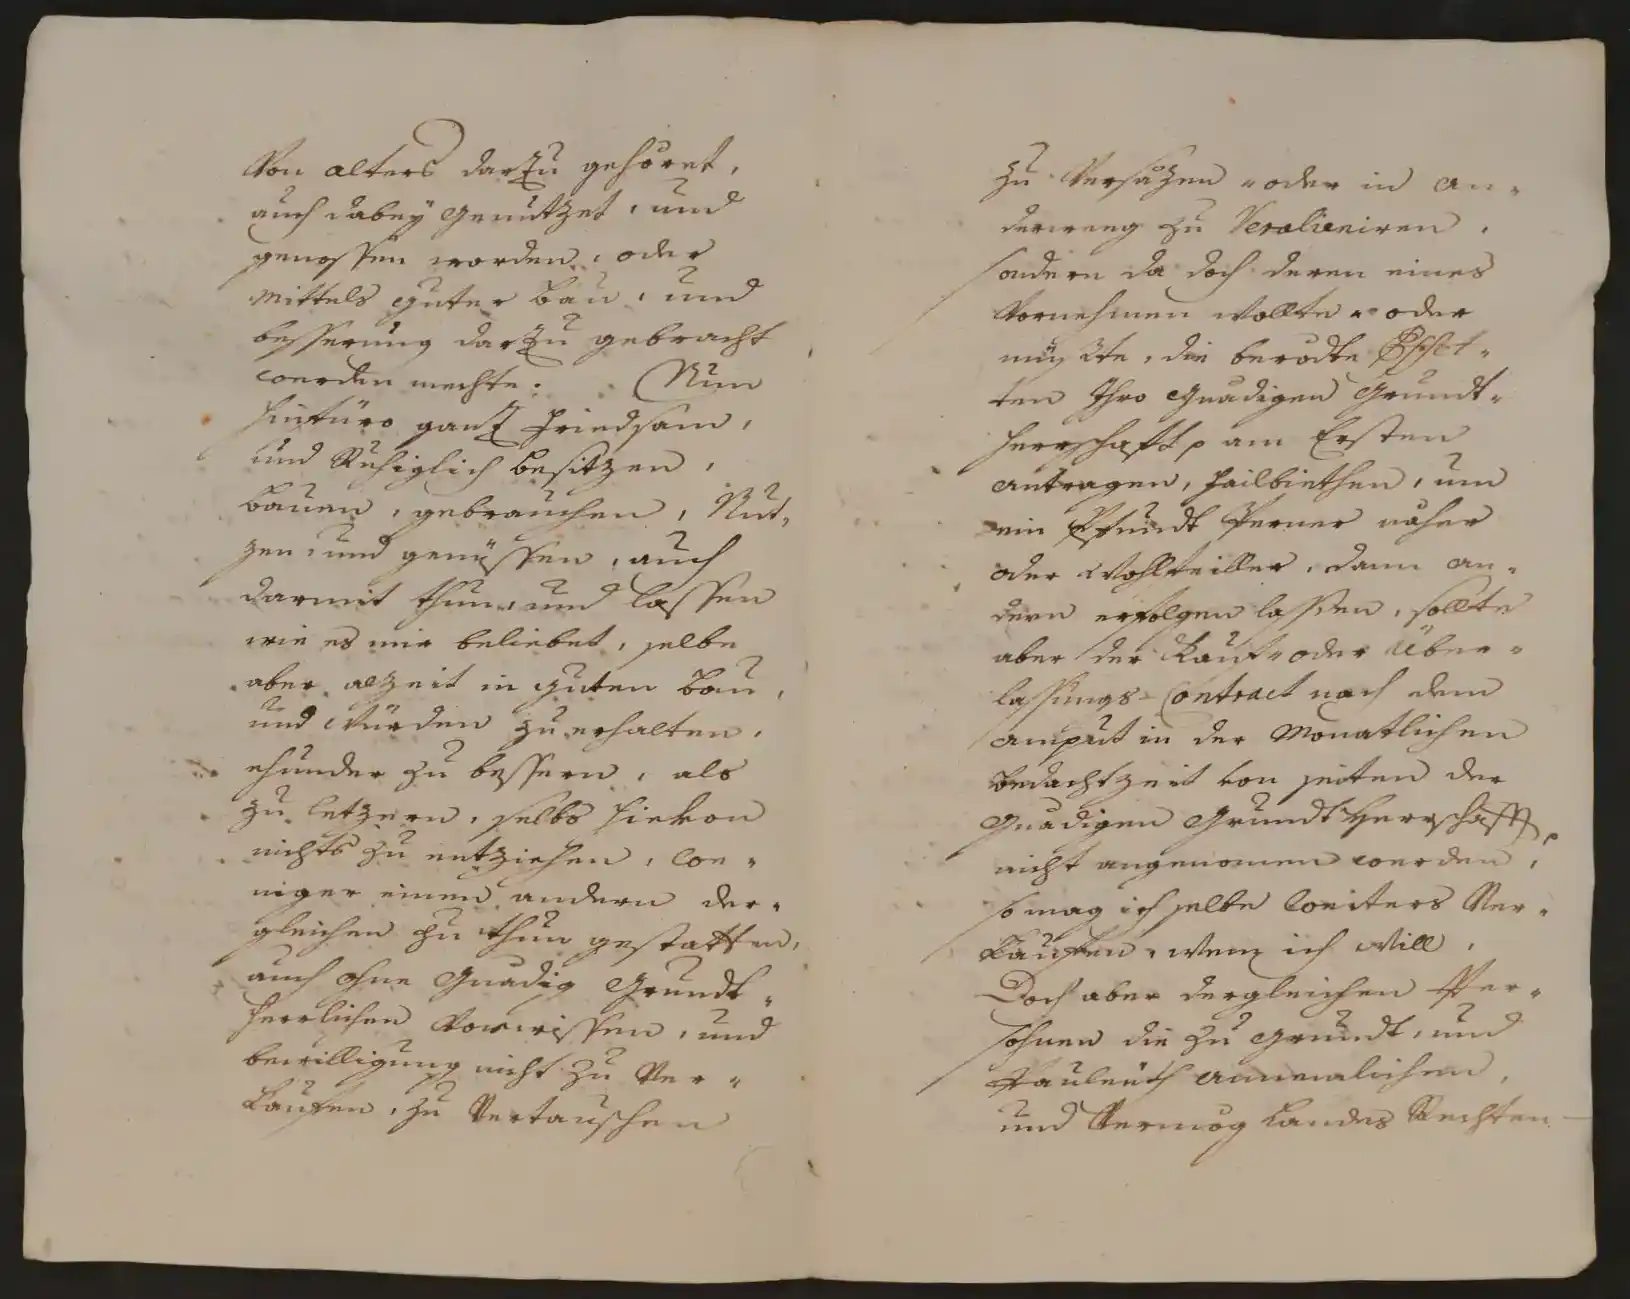 Von alters darzu gehöret,
auch dabey genutzet, und
genossen worden, oder
mittels guter bau, und
besserung darzu gebracht
werden mechte. Nun
hinfüro ganz friedsam,
und Ruhiglich besitzen,
bauen, gebrauchen, Nut-
zen, und genüssen, auch
darmit thun, und lassen
wie es mir beliebet, selbe
aber alzeit in guten bau,
und würden zu erhalten,
ehunder zu bessern, als
zu letzern, selbs hievon
nichts zu entziehen, we-
niger einen andern der-
gleichen zu thun gestatten,
auch ohne Gnädig Grundt-
herrlichen Vorwissen, und
bewilligung nicht zu Ver-
kaufen, zu Vertauschen
zu Versäzen oder in an-
derweeg zu Veralieniren,
sondern da doch deren eines
Vornehmen wollte oder
müste, die berödte
ten Ihro Gnädigen Grundt-
herrschafft am Ersten
antragen, failbiethen, um
ein Pfundt Perner näher
oder Wohlfeiller, dann an-
dern erfolgen lassen, sollte
aber der Kauf- oder Über-
lassungs-Contract nach dem
in der Monatlichen
bedachtzeit von seiten der
Gnädigen Grundt Herrschafft
nicht angenomen werden,
so mag ich selbe weiters Ver-
kaufen, wem ich will,
Doch aber dergleichen Per-
sohnen die zu Grundt, und
Pauleüth annemlichen,
und Vermög Landes Rechten